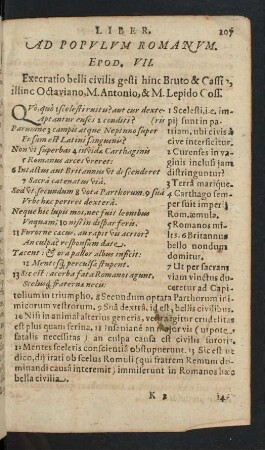 LIBER. 207
AD POPVLVM ROMANVM.
EPOD. VII.
Execratio belli civilis gesti hinc Bruto & Cassio,
illinc Octaviano, M. Antonio, & M. Lepido Coss.
QVo, quò 1 scelesti ruitis? aut cur dexte-
aptantur enses 2 conditi? (ris
Parumne 3 campis atque Neptuno super
Fusum est Latini sanguinis?
Non vt superbas 4 invidæ Carthaginis
5 Romanus arces vreret:
6 Intactus aut Britannus vt descenderet
7 Sacra catenatus via.
Sed vt secundum 8 vota Parthorum, 9 sua
Vrbs hæc periret dextera.
Neque hic lupis mos, nec fuit leonibus
Vnquam, 10 nisi in dispar feris.
11 Furorne cæcus, an rapit vis acrior?
An culpa? responsum date.
Tacent: & ora pallor albus inficit:
12 Mentesq́; perculsæ stupent.
13 Sic est: acerba fata Romanos agunt,
Scelusq́; fraternæ necis:
1 Scelesti. i. e. im-
pij sunt in pa-
triam, ubi civis à
cive interficitur.
2 Cur enses in va-
ginis inclusi jam
distringuntur?
3 Terra marique.
4 Carthago sem-
per fuit imperij
Rom. æmula.
5 Romanos mi-
les. 6 Britannos
bello nondum
domitus.
7 Ut per sacram
viam vinctus du-
ceretur ad Capi-
tolium in triumpho. 8 Secundum optata Parthorum ini-
micorum vestrorum. 9 Suâ dexterâ, id est, bellis civilibus.
10 Nisi in animal alterius generis, vestra igitur crudelitas
est plus quam ferina. 11 Insania ne an major vis (urpote
fatalis necessitas) an culpa causa est furoris
12 Mentes sceleris conscientiâ obstupuerunt. 13 Sic est ut
dico, diri fati ob scelus Romuli (qui fratrem Remum di-
mnandi causâ interemit) immiserunt in Romanos hæc
bella civilia.
K 2 14.